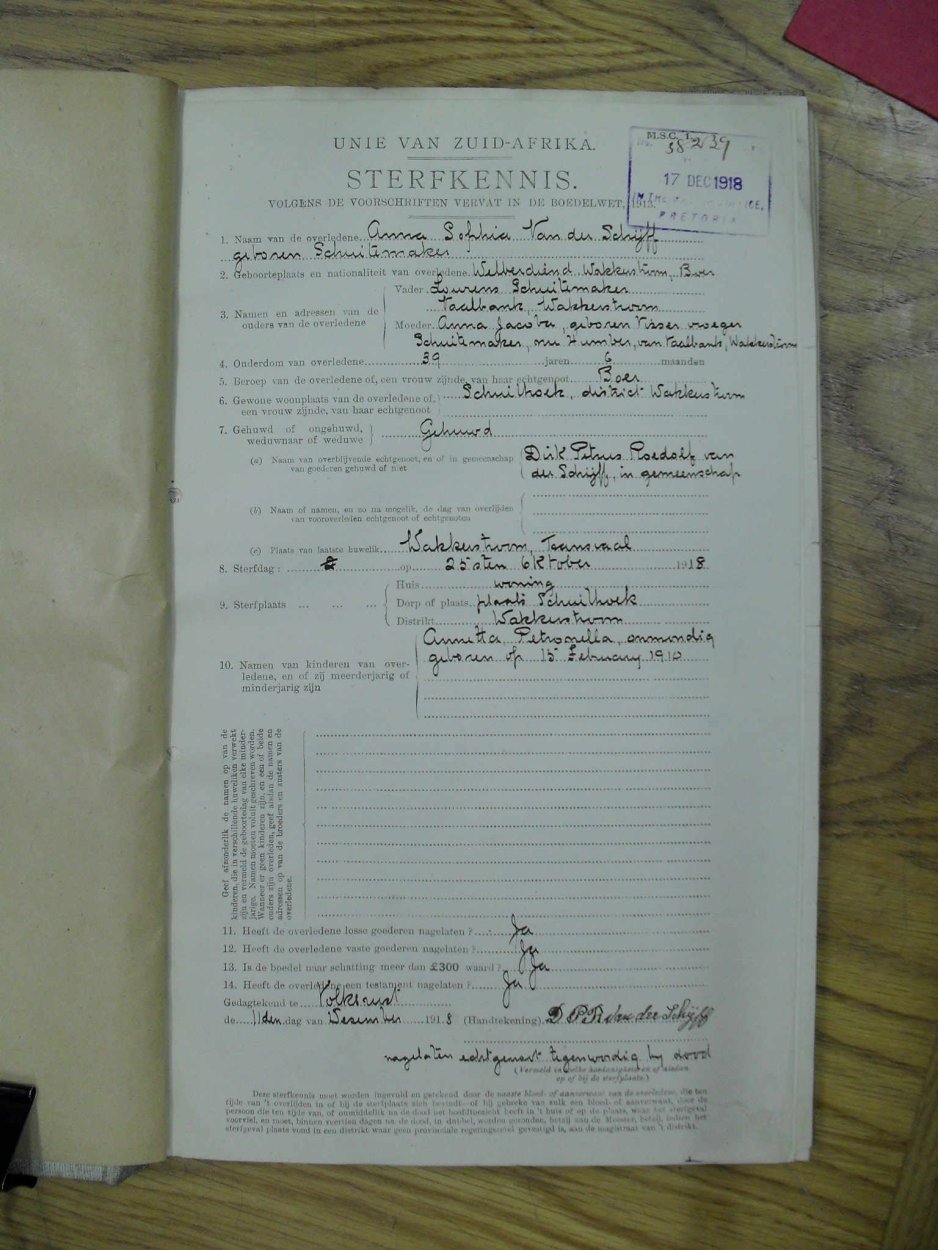 UNIE VAN ZUID-AFRIKA.
M.S.C. 1.
38239
17 DEC 1918
PRETORIA
STERFKENNIS.
VOLGENS DE VOORSCHRIFTEN VERVAT IN DE BOEDELWET, 1913.
1. Naam van de overledene Anna Sophia Van der Schijff
geboren Schuitemaker
2. Geboorteplaats en nationaliteit van overledene Welverdiend, Wakkerstroom, Boer
3. Namen en adressen van de ouders van de overledene
Vader Lourens Schuitemaker
Vaalbank, Wakkerstroom
Moeder Anna Jacoba, geboren Visser vroeger
Schuitemaker, nu Humber, van Vaalbank, Wakkerstroom
4. Ouderdom van overledene 39 jaren 6 maanden
5. Beroep van de overledene of, een vrouw zijnde, van haar echtgenoot Boer
6. Gewone woonplaats van de overledene of, een vrouw zijnde, van haar echtgenoot
Schuilhoek, district Wakkerstroom
7. Gehuwd of ongehuwd, weduwnaar of weduwe
Gehuwd
(a) Naam van overblijvende echtgenoot, en of in gemeenschap van goederen gehuwd of niet
Dirk Petrus Roedolf van
der Schijff, in gemeenschap
(b) Naam of namen, en zo na mogelik, de dag van overlijden van vooroverleden echtgenoot of echtgenoten
(c) Plaats van laatste huwelik Wakkerstroom, Transvaal
8. Sterfdag: op 25sten Oktober 1918
9. Sterfplaats
Huis woning
Dorp of plaats plaats Schuilhoek
Distrikt Wakkerstroom
10. Namen van kinderen van overledene, en of zij meerderjarig of minderjarig zijn
Annetta Petronella, onmondig
geboren op 15 February 1910
Geef afzonderlik de namen op van de
kinderen, die in verschillende huweliken verwekt
zijn en vermeld de geboortedag van elke minderjarige. Namen moeten voluit geschreven worden.
Wanneer er geen kinderen zijn, en een of beide
ouders zijn overleden, geef alsdan de namen en
adressen op van de broeders en zusters van de
overledene.
11. Heeft de overledene losse goederen nagelaten? Ja
12. Heeft de overledene vaste goederen nagelaten? Ja
13. Is de boedel naar schatting meer dan £300 waard? Ja
14. Heeft de overledene een testament nagelaten? Ja
Gedagtekend te Volksrust
de 11den dag van Desember 1918 (Handtekening) D P R van der Schijff
nagelaten echtgenoot tegenwoordig by dood
(Vermeld in welke hoedanigheid en of aanwezig op of bij de sterfplaats.)
Deze sterfkennis moet worden ingevuld en getekend door de naaste bloed- of aanverwant van de overledene, die ten
tijde van 't overlijden in of bij de sterfplaats zich bevindt